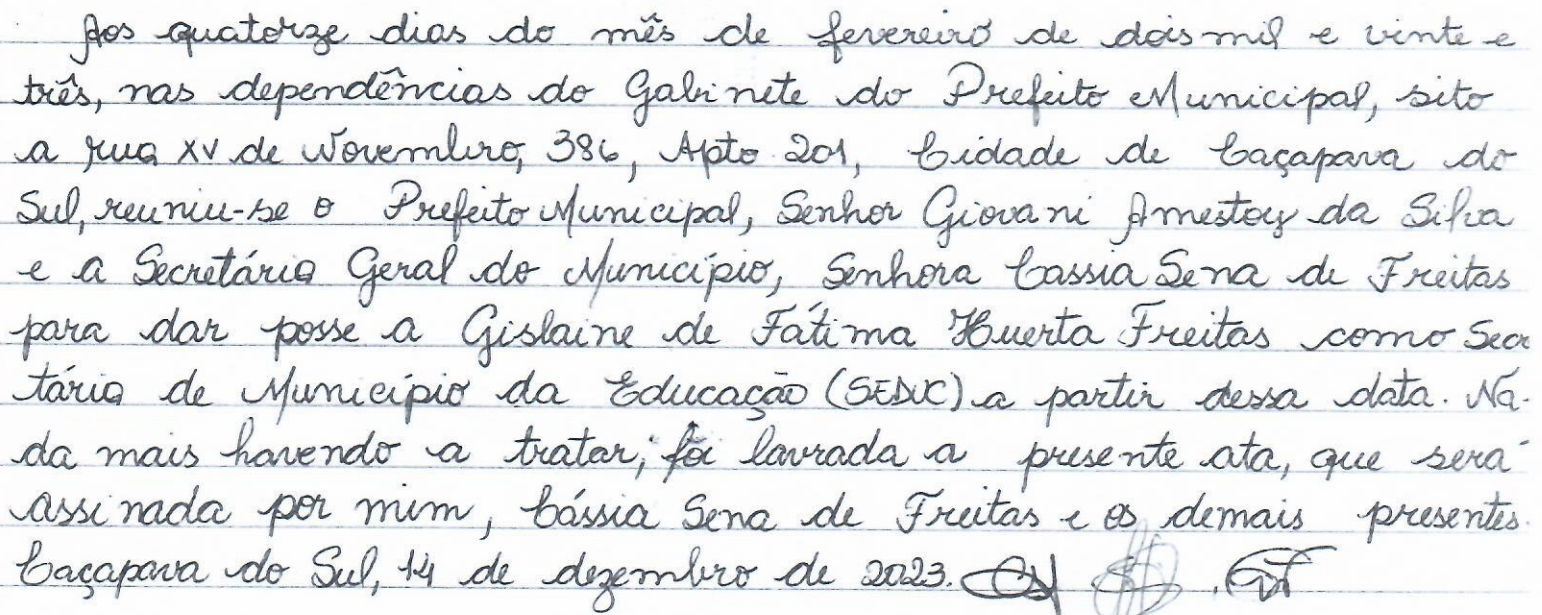 Aos quatorze dias do mês de fevereiro de dois mil e vinte e
três, nas dependências do Gabinete do Prefeito Municipal, sito
a rua XV de Novembro, 386, Apto 201, Cidade de Caçapava do
Sul, reuniu-se o Prefeito Municipal, Senhor Giovani Amestoy da Silva
e a Secretária Geral do Município, Senhora Cassia Sena de Freitas
para dar posse a Gislaine de Fátima Huerta Freitas como Secre
tária de Município da Educação (SEDUC) a partir dessa data. Na-
da mais havendo a tratar, foi lavrada a presente ata, que será
assinada por mim, Cássia Sena de Freitas e os demais presentes.
Caçapava do Sul, 14 de dezembro de 2023.